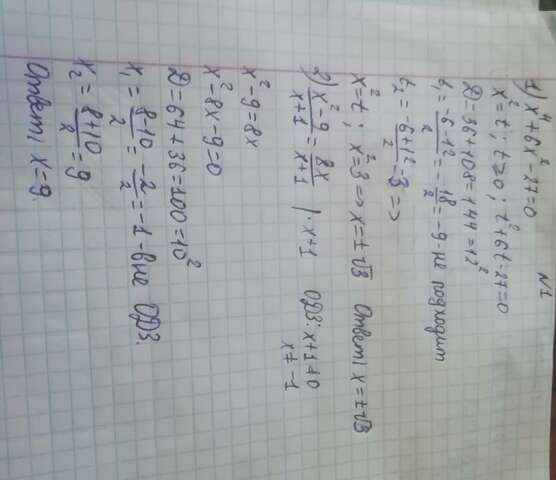 N1
1) x⁴+6x²-27=0
x²=t; t≥0; t²+6t-27=0
D=36+108=144=12²
t₁=(-6-12)/2=-18/2=-9-не подходит
t₂=(-6+12)/2=3=>
x²=t; x²=3=>x=±√3 Ответ: x=±√3
2) (x²-9)/(x+1)=8x/(x+1) |·x+1 ОДЗ: x+1≠0
x≠-1
x²-9=8x
x²-8x-9=0
D=64+36=100=10²
x₁=(8-10)/2=-2/2=-1-вне ОДЗ.
x₂=(8+10)/2=9
Ответ: x=9.